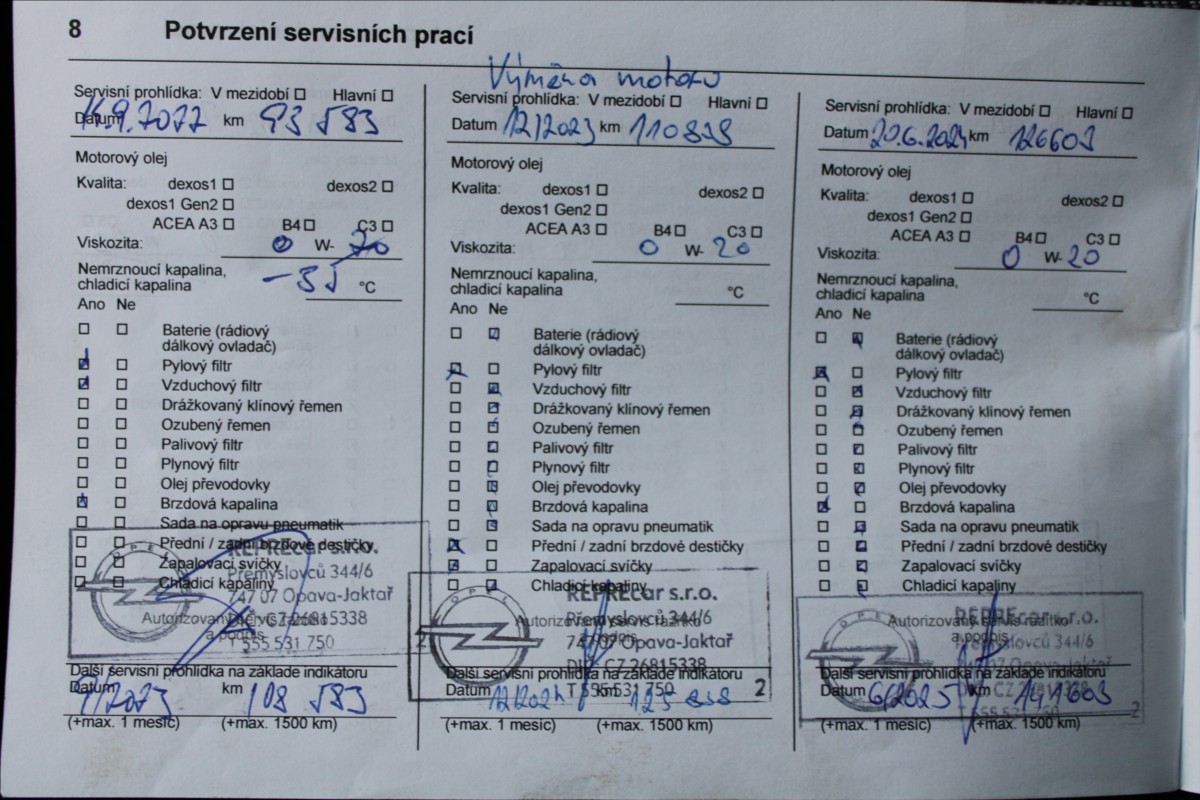 8 Potvrzení servisních prací
Servisní prohlídka: V mezidobí Hlavní
Datum 14.9.2022 km 93 583
Motorový olej
Kvalita: dexos1 dexos2
dexos1 Gen2
ACEA A3 B4 C3
Viskozita: 0 W- 20
Nemrznoucí kapalina,
chladicí kapalina -35 °C
Ano Ne
Baterie (rádiový
dálkový ovladač)
Pylový filtr
Vzduchový filtr
Drážkovaný klínový řemen
Ozubený řemen
Palivový filtr
Plynový filtr
Olej převodovky
Brzdová kapalina
Sada na opravu pneumatik
Přední / zadní brzdové destičky
Zapalovací svíčky
Chladicí kapaliny
OPEL
REPRECar s.r.o.
Přemyslovců 344/6
747 07 Opava-Jaktař
DIČ: CZ 26815338
T 555 531 750
2
Autorizovaný servis razítko
a podpis
Další servisní prohlídka na základě indikátoru
Datum 9/2023 km 108 583
(+max. 1 měsíc) (+max. 1500 km)
Výměna motoru
Servisní prohlídka: V mezidobí Hlavní
Datum 12/2023 km 110 838
Motorový olej
Kvalita: dexos1 dexos2
dexos1 Gen2
ACEA A3 B4 C3
Viskozita: 0 W- 20
Nemrznoucí kapalina,
chladicí kapalina °C
Ano Ne
Baterie (rádiový
dálkový ovladač)
Pylový filtr
Vzduchový filtr
Drážkovaný klínový řemen
Ozubený řemen
Palivový filtr
Plynový filtr
Olej převodovky
Brzdová kapalina
Sada na opravu pneumatik
Přední / zadní brzdové destičky
Zapalovací svíčky
Chladicí kapaliny
OPEL
REPRECar s.r.o.
Přemyslovců 344/6
747 07 Opava-Jaktař
DIČ: CZ 26815338
T 555 531 750
2
Autorizovaný servis razítko
a podpis
Další servisní prohlídka na základě indikátoru
Datum 12/2024 km 125 838
(+max. 1 měsíc) (+max. 1500 km)
Servisní prohlídka: V mezidobí Hlavní
Datum 20.6.2024 km 126603
Motorový olej
Kvalita: dexos1 dexos2
dexos1 Gen2
ACEA A3 B4 C3
Viskozita: 0 W- 20
Nemrznoucí kapalina,
chladicí kapalina °C
Ano Ne
Baterie (rádiový
dálkový ovladač)
Pylový filtr
Vzduchový filtr
Drážkovaný klínový řemen
Ozubený řemen
Palivový filtr
Plynový filtr
Olej převodovky
Brzdová kapalina
Sada na opravu pneumatik
Přední / zadní brzdové destičky
Zapalovací svíčky
Chladicí kapaliny
OPEL
REPRECar s.r.o.
Přemyslovců 344/6
747 07 Opava-Jaktař
DIČ: CZ 26815338
T 555 531 750
2
Autorizovaný servis razítko
a podpis
Další servisní prohlídka na základě indikátoru
Datum 6/2025 km 141603
(+max. 1 měsíc) (+max. 1500 km)